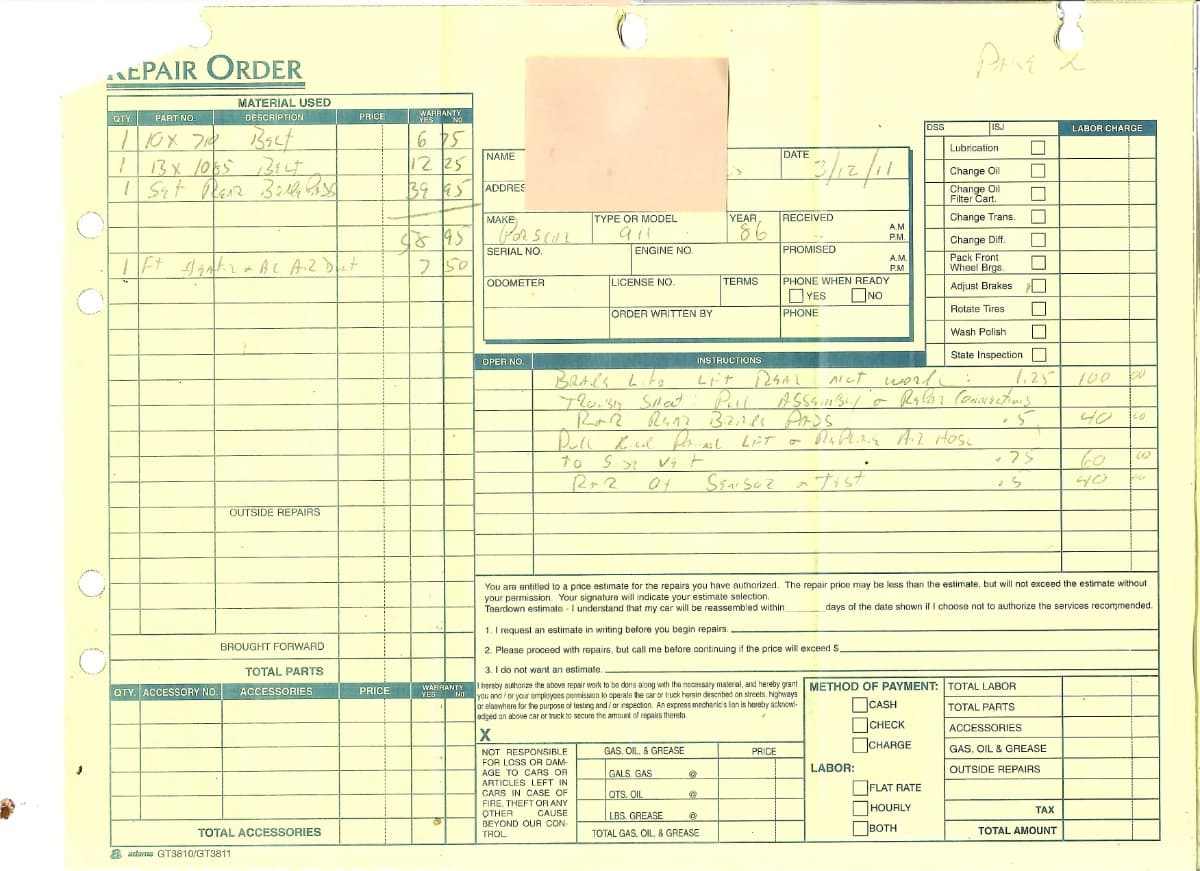 Page 2
REPAIR ORDER
MATERIAL USED
QTY. PART NO. DESCRIPTION PRICE WARRANTY YES NO
1 10 x 710 Belt 6 75
1 13 x 1085 Belt 12 25
1 Set Rear Brake Pads 39 95
58 95
1 Ft A/C Air Duct 7 50
OUTSIDE REPAIRS
BROUGHT FORWARD
TOTAL PARTS
QTY. ACCESSORY NO. ACCESSORIES PRICE WARRANTY YES NO
TOTAL ACCESSORIES
adams GT3810/GT3811
NAME
DATE 3/12/11
ADDRES
MAKE Porsche TYPE OR MODEL 911 YEAR 86 RECEIVED A.M. P.M.
SERIAL NO. ENGINE NO. PROMISED A.M. P.M.
ODOMETER LICENSE NO. TERMS PHONE WHEN READY
YES NO
ORDER WRITTEN BY PHONE
DSS ISJ LABOR CHARGE
Lubrication
Change Oil
Change Oil Filter Cart.
Change Trans.
Change Diff.
Pack Front Wheel Brgs.
Adjust Brakes
Rotate Tires
Wash Polish
State Inspection
OPER NO. INSTRUCTIONS
Brake Lite Left Rear not work : 1.25 100 00
Trouble Shoot : Pull Assembly & Repair Connections
R&R Rear Brake Pads .5 40 00
Pull Left & Replace Air Hose
To Vent .75 60 00
R&R Sensor & Test .5 40 00
You are entitled to a price estimate for the repairs you have authorized. The repair price may be less than the estimate, but will not exceed the estimate without
your permission. Your signature will indicate your estimate selection.
Teardown estimate - I understand that my car will be reassembled within days of the date shown if I choose not to authorize the services recommended.
1. I request an estimate in writing before you begin repairs.
2. Please proceed with repairs, but call me before continuing if the price will exceed $
3. I do not want an estimate.
I hereby authorize the above repair work to be done along with the necessary material, and hereby grant
you and / or your employees permission to operate the car or truck herein described on streets, highways
or elsewhere for the purpose of testing and / or inspection. An express mechanic's lien is hereby acknowl-
edged on above car or truck to secure the amount of repairs thereto.
X
NOT RESPONSIBLE
FOR LOSS OR DAM-
AGE TO CARS OR
ARTICLES LEFT IN
CARS IN CASE OF
FIRE, THEFT OR ANY
OTHER CAUSE
BEYOND OUR CON-
TROL.
GAS, OIL, & GREASE PRICE
GALS. GAS @
QTS. OIL @
LBS. GREASE @
TOTAL GAS, OIL, & GREASE
METHOD OF PAYMENT:
CASH
CHECK
CHARGE
LABOR:
FLAT RATE
HOURLY
BOTH
TOTAL LABOR
TOTAL PARTS
ACCESSORIES
GAS, OIL & GREASE
OUTSIDE REPAIRS
TAX
TOTAL AMOUNT